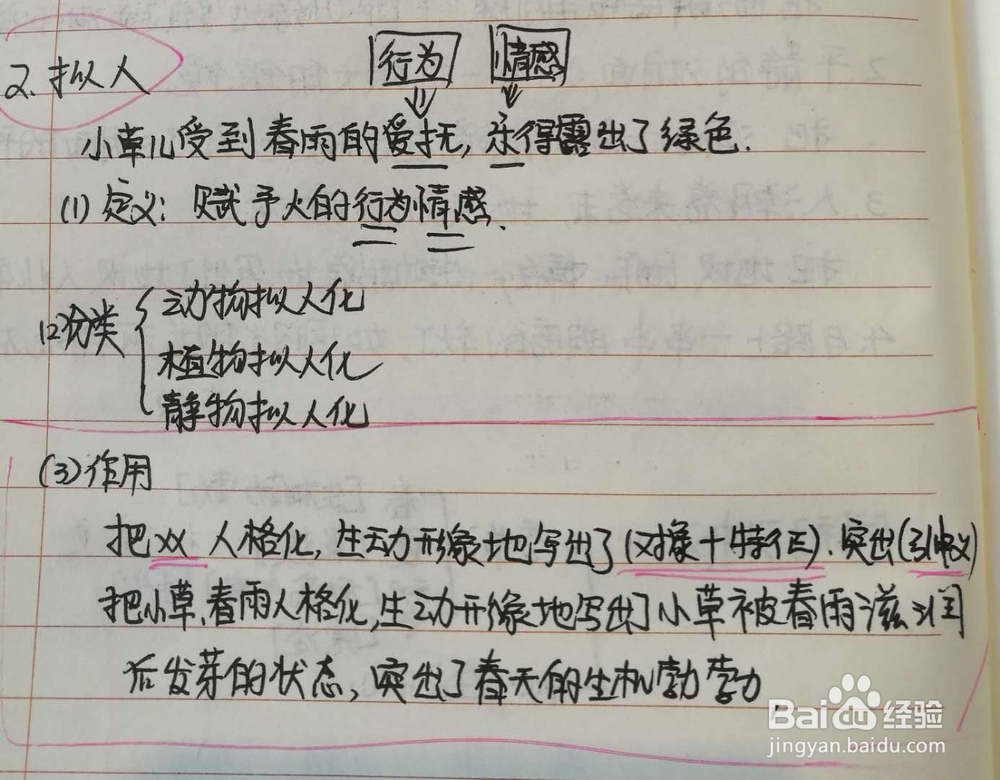 2. 拟人
行为 情感
小草儿受到春雨的爱抚,乐得露出了绿色.
(1) 定义: 赋予人的行为情感.
(2)分类
动物拟人化
植物拟人化
静物拟人化
(3)作用
把XX人格化,生动形象地写出了(对象+特征).突出(引申义)
把小草、春雨人格化,生动形象地写出了小草被春雨滋润
后发芽的状态,突出了春天的生机勃勃.
Baidu经验
jingyan.baidu.com